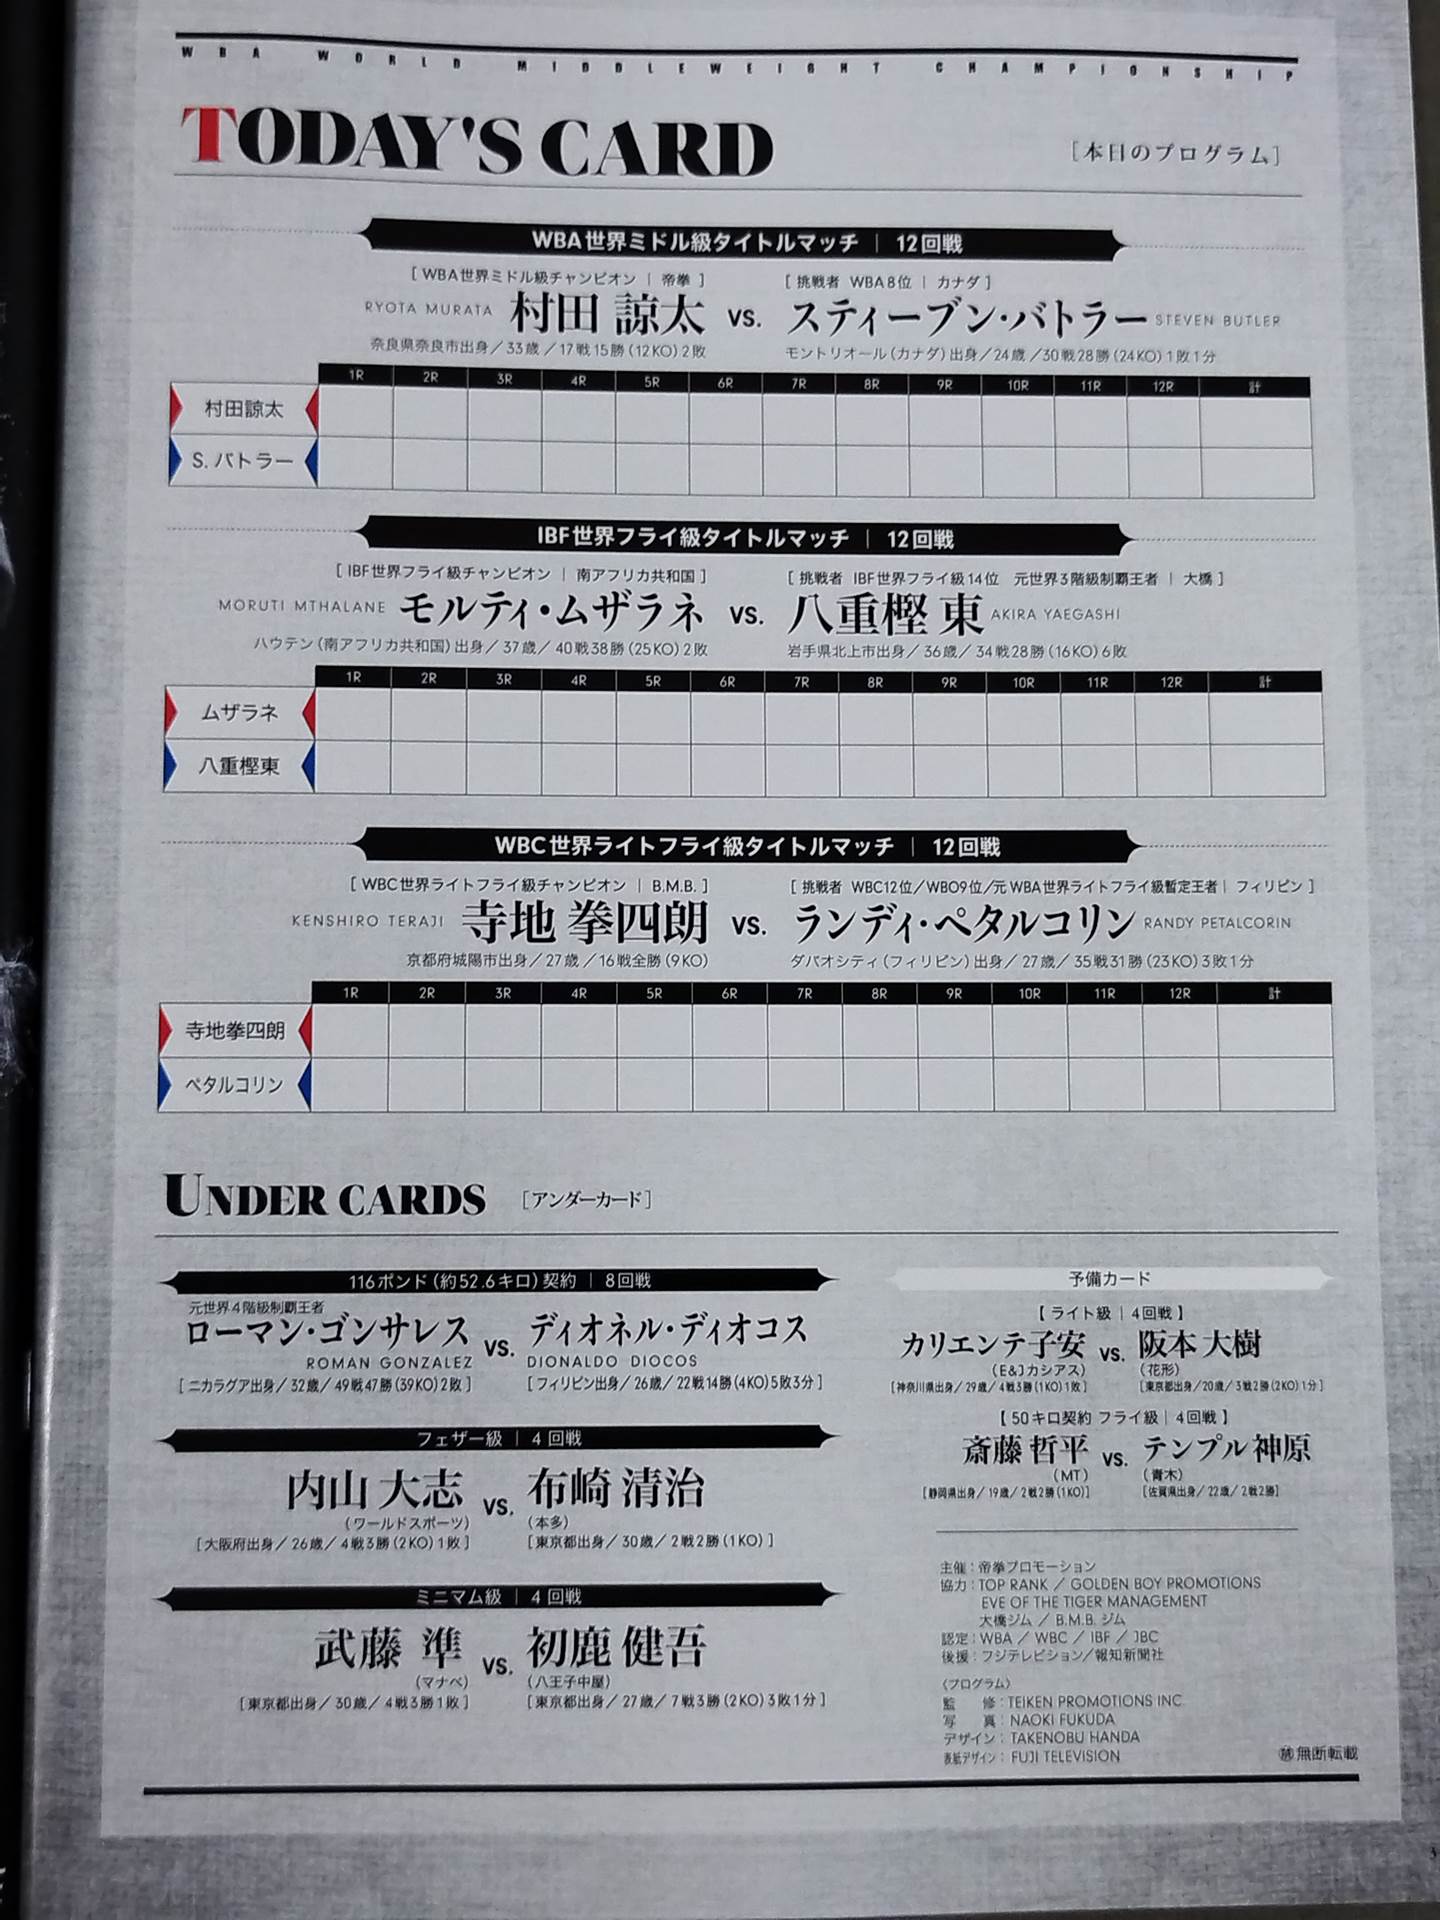 WBA WORLD MIDDLEWEIGHT CHAMPIONSHIP
TODAY'S CARD
［本日のプログラム］
WBA世界ミドル級タイトルマッチ｜12回戦
［WBA世界ミドル級チャンピオン｜帝拳］
［挑戦者 WBA8位｜カナダ］
RYOTA MURATA 村田 諒太 vs. スティーブン・バトラー STEVEN BUTLER
奈良県奈良市出身／33歳／17戦15勝(12KO)2敗
モントリオール(カナダ)出身／24歳／30戦28勝(24KO)1敗1分
1R 2R 3R 4R 5R 6R 7R 8R 9R 10R 11R 12R 計
村田諒太
S.バトラー
IBF世界フライ級タイトルマッチ｜12回戦
［IBF世界フライ級チャンピオン｜南アフリカ共和国］
［挑戦者 IBF世界フライ級14位 元世界3階級制覇王者｜大橋］
MORUTI MTHALANE モルティ・ムザラネ vs. 八重樫 東 AKIRA YAEGASHI
ハウテン(南アフリカ共和国)出身／37歳／40戦38勝(25KO)2敗
岩手県北上市出身／36歳／34戦28勝(16KO)6敗
1R 2R 3R 4R 5R 6R 7R 8R 9R 10R 11R 12R 計
ムザラネ
八重樫東
WBC世界ライトフライ級タイトルマッチ｜12回戦
［WBC世界ライトフライ級チャンピオン｜B.M.B.］
［挑戦者 WBC12位／WBO9位／元WBA世界ライトフライ級暫定王者｜フィリピン］
KENSHIRO TERAJI 寺地 拳四朗 vs. ランディ・ペタルコリン RANDY PETALCORIN
京都府城陽市出身／27歳／16戦全勝(9KO)
ダバオシティ(フィリピン)出身／27歳／35戦31勝(23KO)3敗1分
1R 2R 3R 4R 5R 6R 7R 8R 9R 10R 11R 12R 計
寺地拳四朗
ペタルコリン
UNDER CARDS ［アンダーカード］
116ポンド(約52.6キロ)契約｜8回戦
元世界4階級制覇王者
ローマン・ゴンサレス vs. ディオネル・ディオコス
ROMAN GONZALEZ DIONALDO DIOCOS
［ニカラグア出身／32歳／49戦47勝(39KO)2敗］
［フィリピン出身／26歳／22戦14勝(4KO)5敗3分］
フェザー級｜4回戦
内山 大志 vs. 布崎 清治
(ワールドスポーツ) (本多)
［大阪府出身／26歳／4戦3勝(2KO)1敗］
［東京都出身／30歳／2戦2勝(1KO)］
ミニマム級｜4回戦
武藤 準 vs. 初鹿 健吾
(マナベ) (八王子中屋)
［東京都出身／30歳／4戦3勝1敗］
［東京都出身／27歳／7戦3勝(2KO)3敗1分］
予備カード
【ライト級｜4回戦】
カリエンテ子安 vs. 阪本 大樹
(E&Jカシアス) (花形)
［神奈川県出身／29歳／4戦3勝(1KO)1敗］
［東京都出身／20歳／3戦2勝(2KO)1分］
【50キロ契約 フライ級｜4回戦】
斎藤 哲平 vs. テンプル神原
(MT) (青木)
［静岡県出身／19歳／2戦2勝(1KO)］
［佐賀県出身／22歳／2戦2勝］
主催：帝拳プロモーション
協力：TOP RANK／GOLDEN BOY PROMOTIONS
EVE OF THE TIGER MANAGEMENT
大橋ジム／B.M.B.ジム
認定：WBA／WBC／IBF／JBC
後援：フジテレビジョン／報知新聞社
〈プログラム〉
監 修：TEIKEN PROMOTIONS INC
写 真：NAOKI FUKUDA
デザイン：TAKENOBU HANDA
表紙デザイン：FUJI TELEVISION
㊙無断転載
3